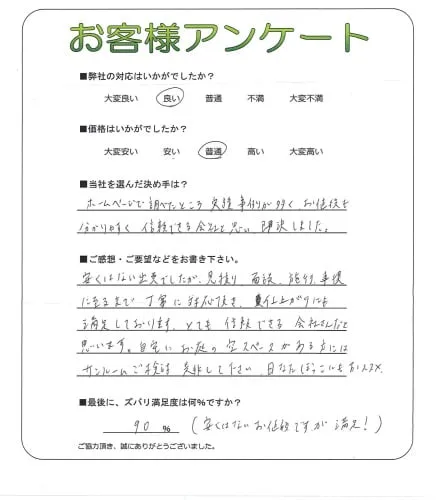 お客様アンケート
■弊社の対応はいかがでしたか？
大変良い 良い 普通 不満 大変不満
■価格はいかがでしたか？
大変安い 安い 普通 高い 大変高い
■当社を選んだ決め手は？
ホームページで調べたところ 実績 事例が多く、お値段も
分かりやすく 信頼できる会社と思い、即決しました。
■ご感想・ご要望などをお書き下さい。
安くはない出費でしたが、見積り、面談、施行、事後
に至るまで 丁寧に 対応頂き、仕上がりにも
満足しております。とても 信頼できる 会社さんだと
思います。自宅に お庭の 空スペースがある方には
サンルームご検討 是非して下さい。日なたぼっこにもおススメ
■最後に、ズバリ満足度は何％ですか？
90 ％ (安くはないお値段ですが 満足！)
ご協力頂き、誠にありがとうございました。